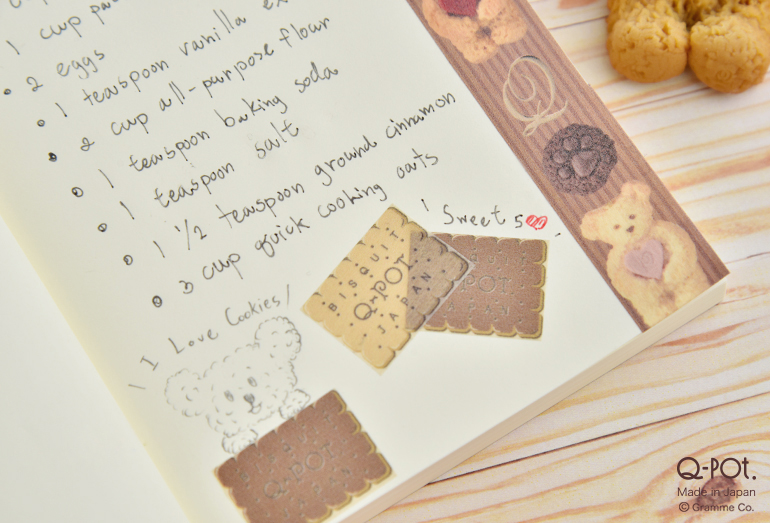 1 cup
2 eggs
1 teaspoon vanilla
2 cup all-purpose flour
1 teaspoon baking soda
1 teaspoon salt
1 1/2 teaspoon ground cinnamon
3 cup quick cooking oats
Sweet
I Love Cookies
BISQUIT
Q-POT
JAPAN
POT
PAN
BISQUIT
Q-POT
PAN
Q
Q-POT.
Made in Japan
© Gramme Co.